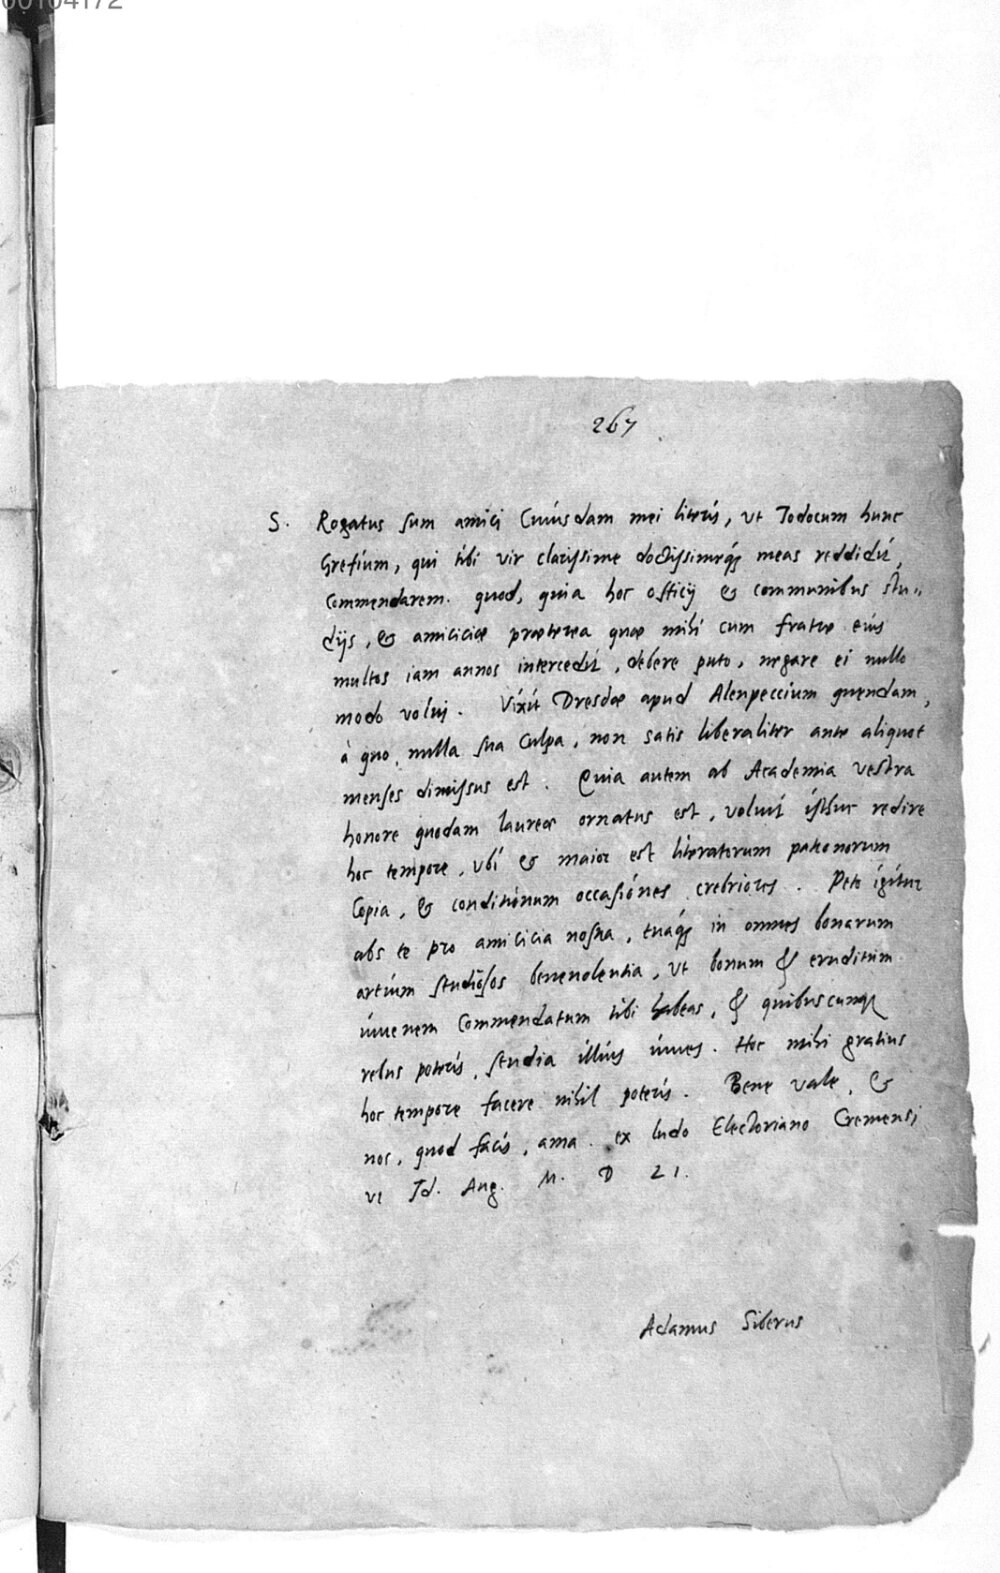 267
S. Rogatus sum amici Cuiusdam mei literis, vt Jodocum hunc
Grefium, qui tibi vir clarissime doctissimeq́; meas reddidit,
Commendarem. quod, quia hoc officij & communibus stu„
dijs, & amiciciæ præterea quæ mihi cum fratre eius
multos iam annos intercedit, debere puto, negare ei nullo
modo volui. Vixit Dresdæ apud Alenpeccium quendam,
à quo, nulla sua Culpa, non satis liberaliter ante aliquot
menses dimissus est. Quia autem ab Academia vestra
honore quodam laureæ ornatus est, voluit isthuc redire
hoc tempore, vbi & maior est literatorum patronorum
Copia, & conditionum occasiones crebriores. Peto igitur
abs te pro amicicia nostra, tuaq́; in omnes bonarum
artium studiosos beneuolentia, vt bonum & eruditum
iuuenem Commendatum tibi habeas, & quibuscunq;
rebus poteris, studia illius iuues. Hoc mihi gratius
hoc tempore facere nihil poteris. Bene vale, &
nos, quod facis, ama. ex ludo Electoriano Cremensi
vi Jd. Aug. M. D 21.
Adamus Siberus